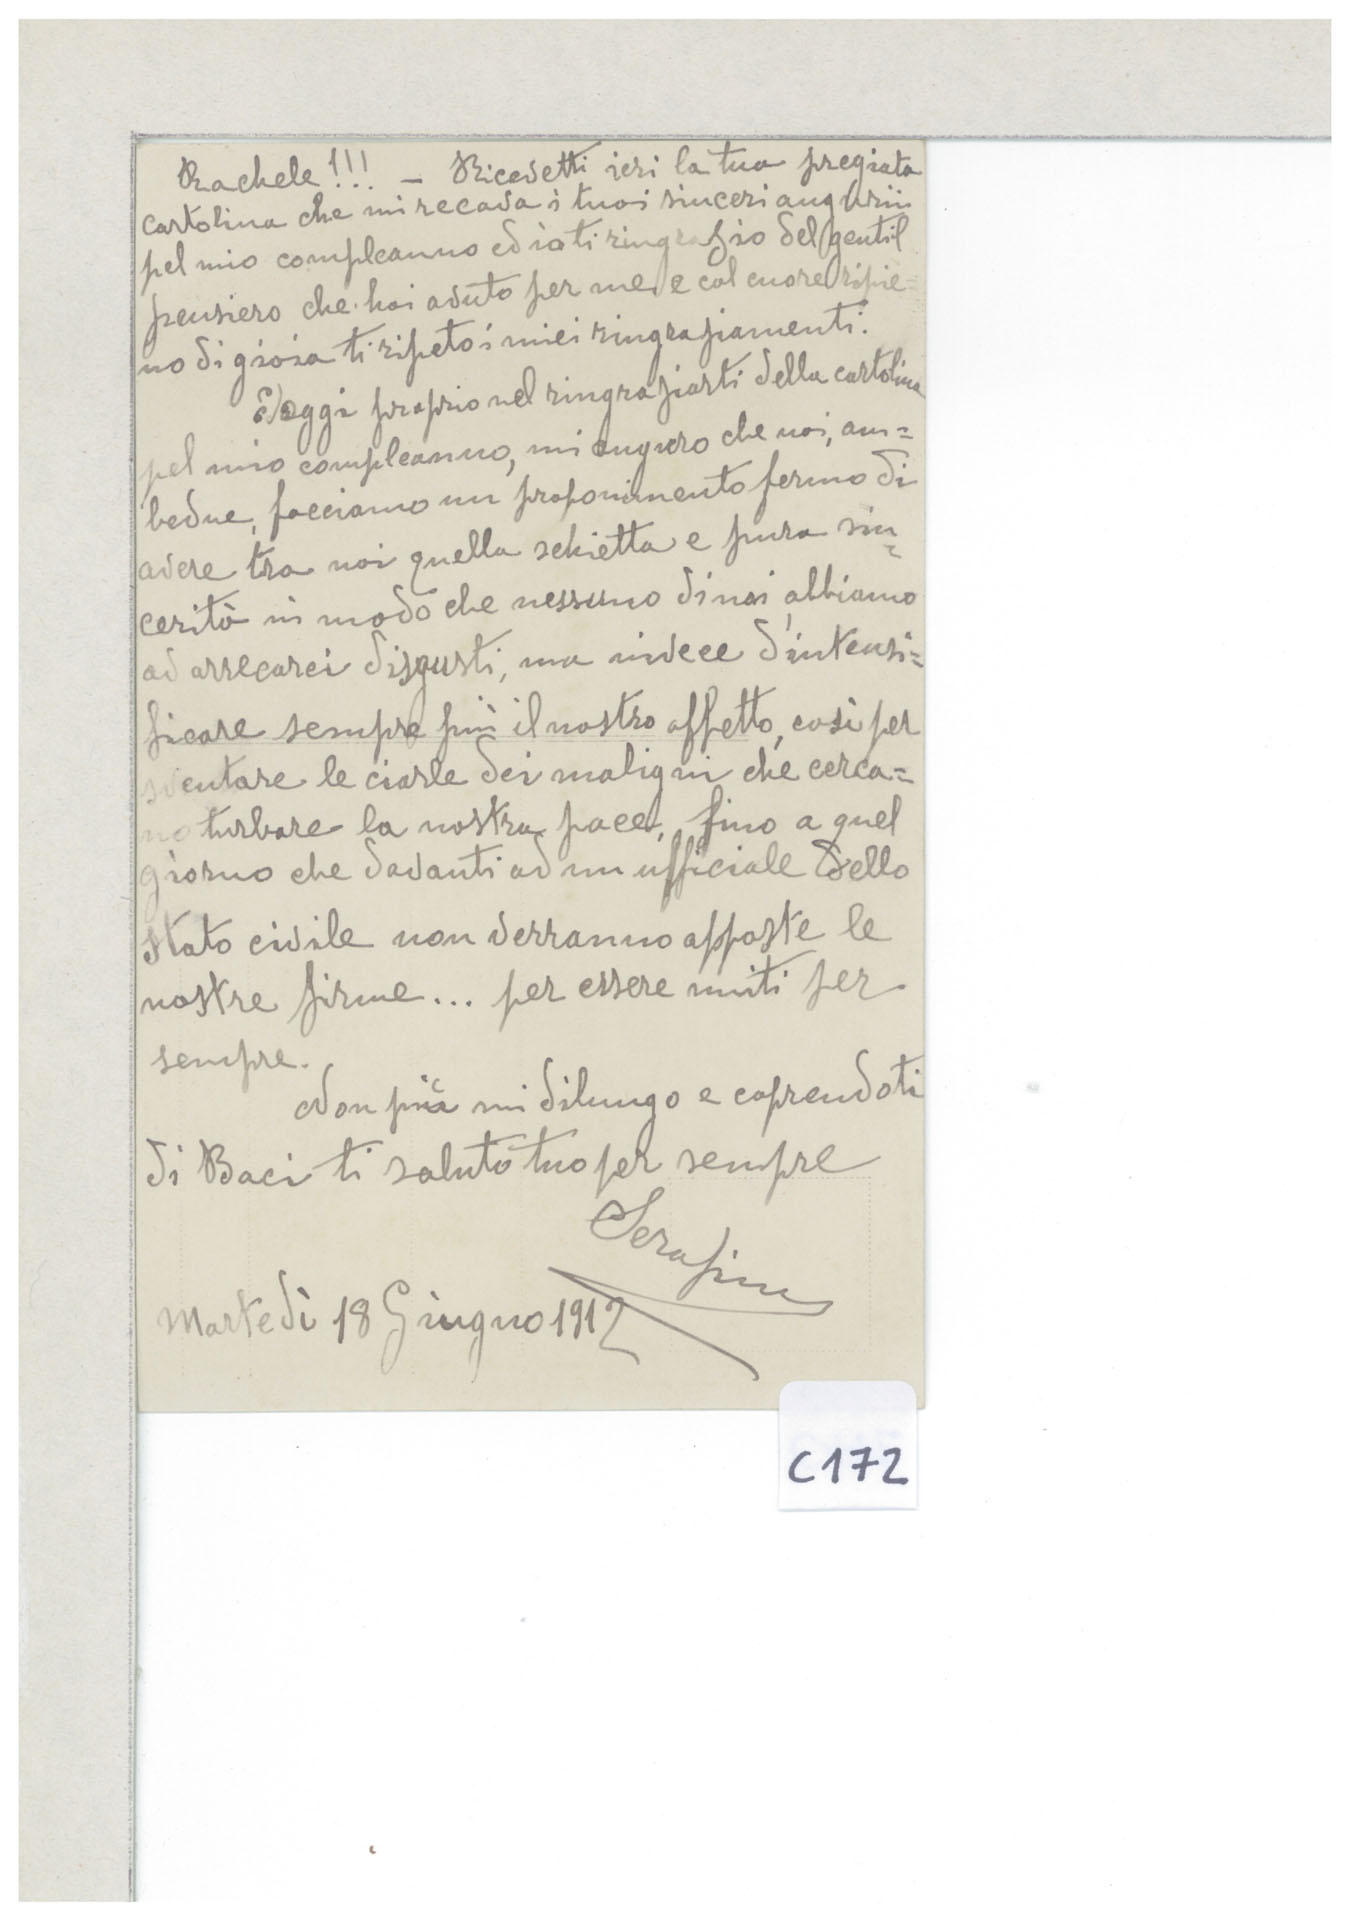 Rachele!!! – Ricevetti ieri la tua pregiata
cartolina che mi recava i tuoi sinceri augurii
pel mio compleanno ed io ti ringrazio del gentil
pensiero che hai avuto per me, e col cuore ripie=
no di gioia ti ripeto i miei ringraziamenti.
Ed oggi proprio nel ringraziarti della cartolina
pel mio compleanno, mi auguro che noi, am=
bedue, facciamo un proponimento fermo di
avere tra noi quella schietta e pura sin=
cerità in modo che nessuno di noi abbiamo
ad arrecarci disgusti, ma invece d'intensi=
ficare sempre più il nostro affetto, così per
sventare le ciarle dei maligni che cerca=
no turbare la nostra pace, fino a quel
giorno che davanti ad un ufficiale dello
stato civile non verranno apposte le
nostre firme... per essere uniti per
sempre.
Non più mi dilungo e coprendoti
di Baci ti saluto tuo per sempre
Serafino
Martedì 18 Giugno 1912
C172